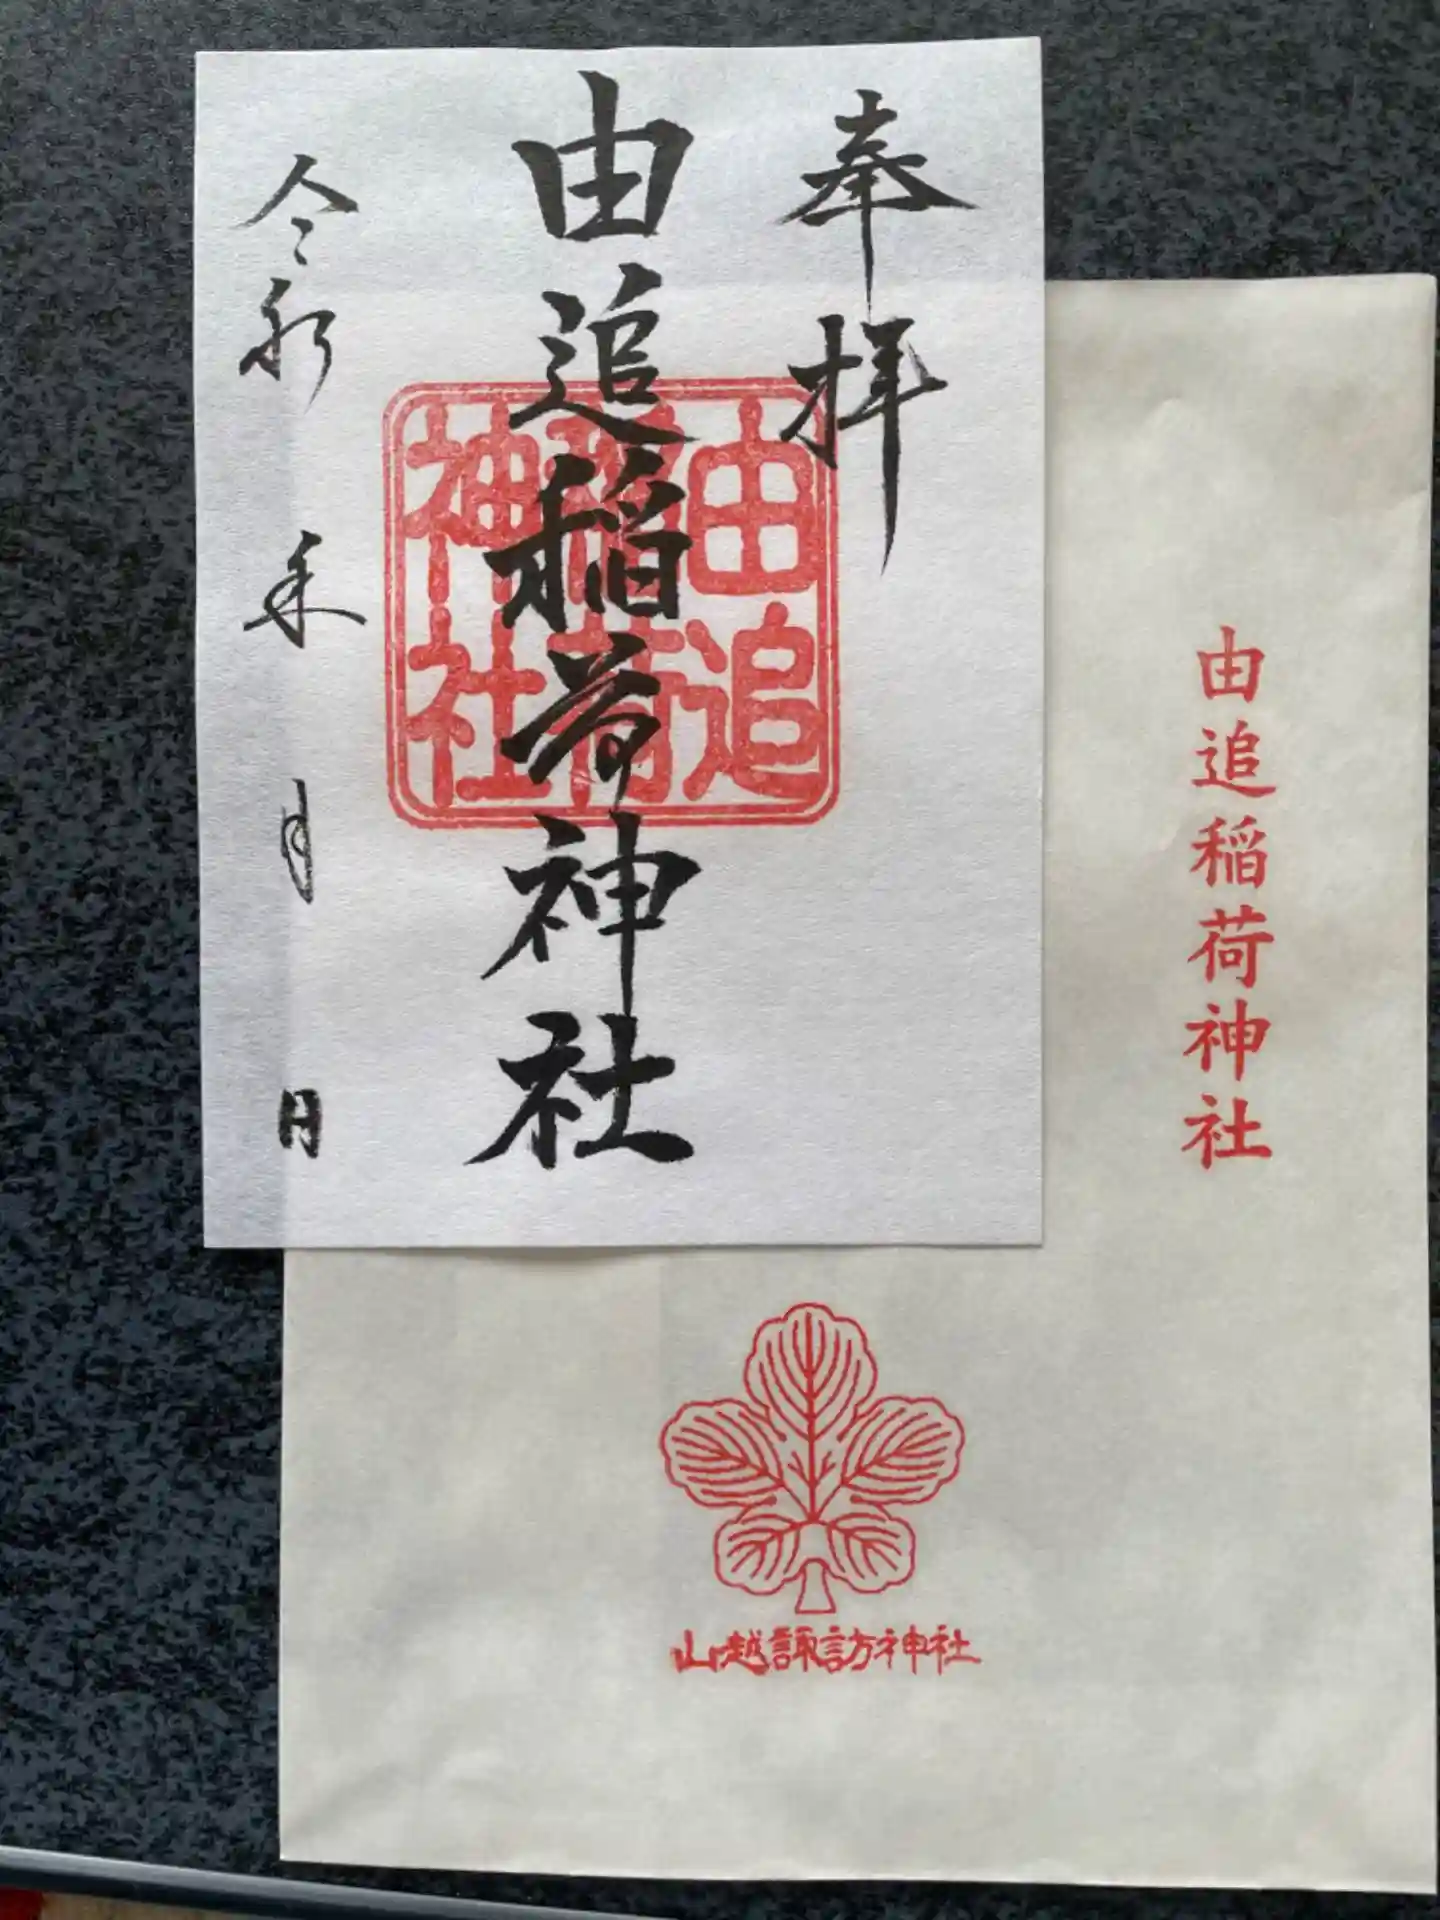 奉拝
由追稲荷神社
由追
稲荷
神社
令和 年 月 日
由追稲荷神社
山越諏訪神社